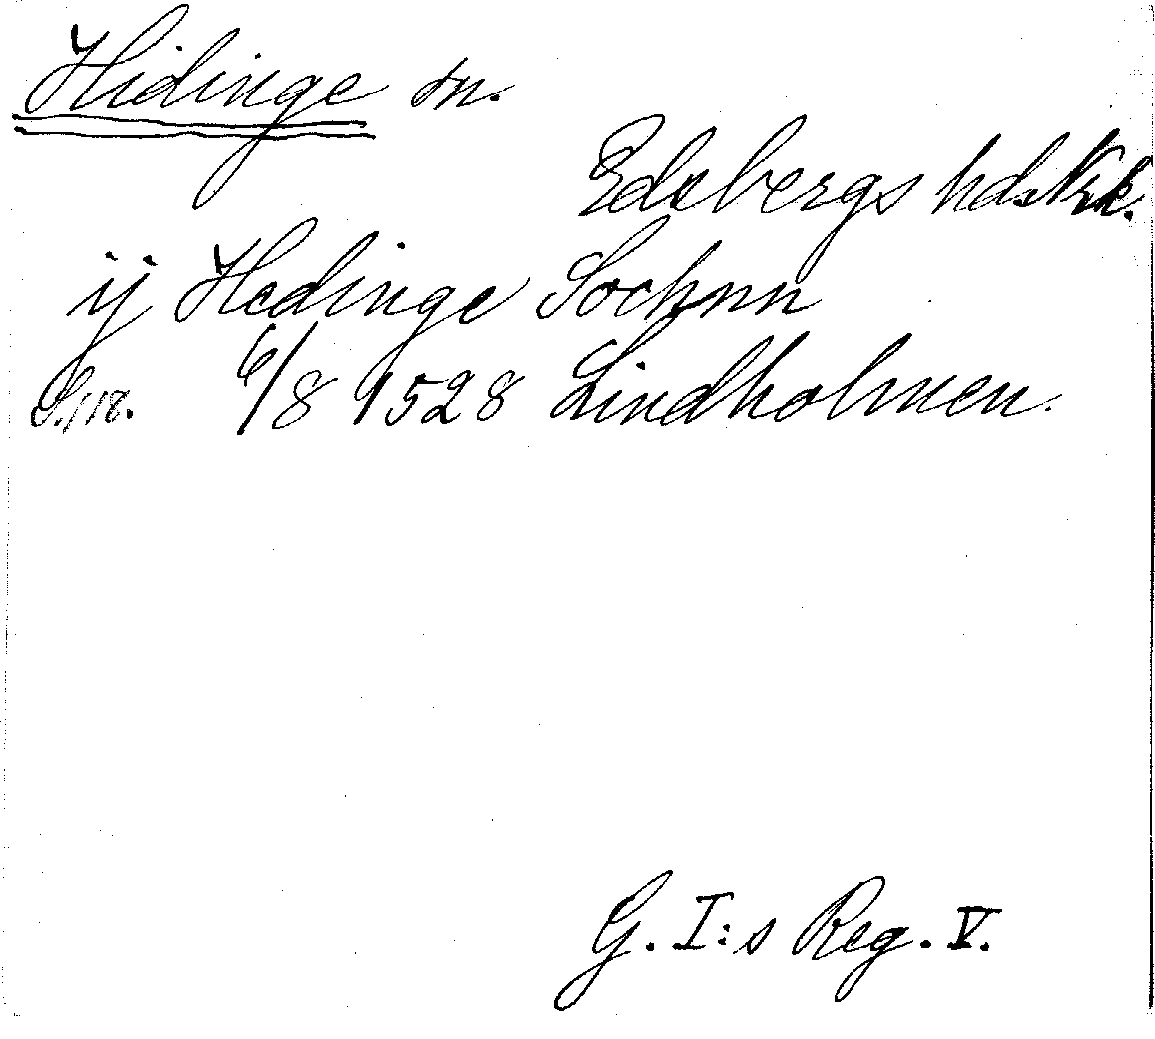 Hidinge sn.
Edsbergs hd.
ij Hedinge Sochnn
S. 118. 6/8 1528 Lindholmen.
G. I:s Reg. V.